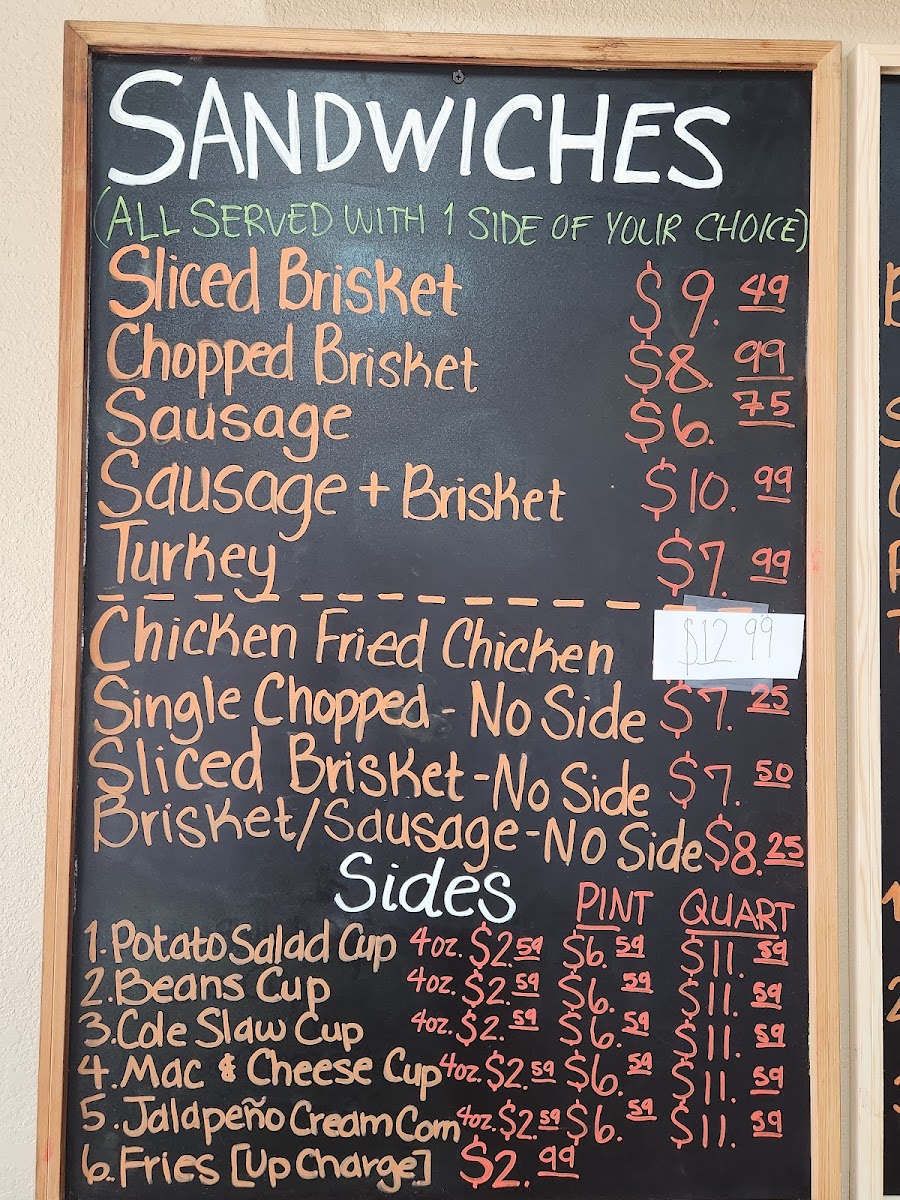 SANDWICHES
(ALL SERVED WITH 1 SIDE OF YOUR CHOICE)
Sliced Brisket $9.49
Chopped Brisket $8.99
Sausage $6.75
Sausage + Brisket $10.99
Turkey $7.99
Chicken Fried Chicken $12 99
Single Chopped - No Side $7.25
Sliced Brisket - No Side $7.50
Brisket/Sausage - No Side $8.25
Sides PINT QUART
1. Potato Salad Cup 4oz. $2.59 $6.59 $11.59
2. Beans Cup 4oz. $2.59 $6.59 $11.59
3. Cole Slaw Cup 4oz. $2.59 $6.59 $11.59
4. Mac & Cheese Cup 4oz. $2.59 $6.59 $11.59
5. Jalapeño Cream Corn 4oz. $2.59 $6.59 $11.59
6. Fries [Up Charge] $2.99